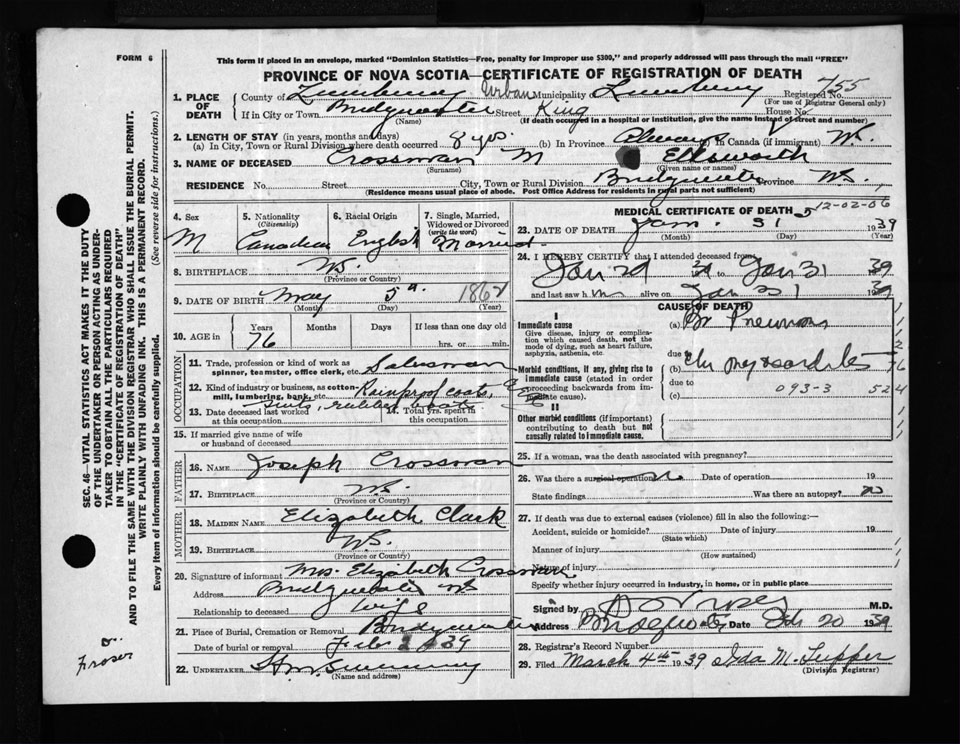 FORM 6
This form if placed in an envelope, marked "Dominion Statistics—Free, penalty for improper use $300," and properly addressed will pass through the mail "FREE"
PROVINCE OF NOVA SCOTIA—CERTIFICATE OF REGISTRATION OF DEATH
1. PLACE OF DEATH
County of Lunenburg Urban Municipality of Lunenburg Registered No. 755
(For use of Registrar General only)
If in City or Town Bridgewater Street King House No.
(Name) (If death occurred in a hospital or institution, give the name instead of street and number)
2. LENGTH OF STAY (in years, months and days)
(a) In City, Town or Rural Division where death occurred 8 yrs. (b) In Province Always (c) In Canada (if immigrant) N.S.
3. NAME OF DECEASED Crossman M Ellsworth
(Surname) (Given name or names)
RESIDENCE No. Street City, Town or Rural Division Bridgewater Province N.S.
(Residence means usual place of abode. Post Office Address for residents in rural parts not sufficient)
4. Sex M
5. Nationality (Citizenship) Canadian
6. Racial Origin English
7. Single, Married, Widowed or Divorced (write the word) Married
8. BIRTHPLACE N.S.
(Province or Country)
9. DATE OF BIRTH May 5th 1862
(Month) (Day) (Year)
10. AGE in Years 76 Months Days If less than one day old hrs. or min.
OCCUPATION
11. Trade, profession or kind of work as spinner, teamster, office clerk, etc. Salesman
12. Kind of industry or business, as cotton-mill, lumbering, bank, etc. Rainproof coats,
suits, rubber boots
13. Date deceased last worked at this occupation
14. Total yrs. spent in this occupation
15. If married give name of wife or husband of deceased
FATHER
16. NAME Joseph Crossman
17. BIRTHPLACE N.S.
(Province or Country)
MOTHER
18. MAIDEN NAME Elizabeth Clark
19. BIRTHPLACE N.S.
(Province or Country)
20. Signature of informant Mrs. Elizabeth Crossman
Address Bridgewater N.S.
Relationship to deceased wife
21. Place of Burial, Cremation or Removal Bridgewater
Date of burial or removal Feb 2 1939
22. UNDERTAKER
(Name and address)
MEDICAL CERTIFICATE OF DEATH
12-02-06
23. DATE OF DEATH Jan. 31 1939
(Month) (Day) (Year)
24. I HEREBY CERTIFY that I attended deceased from
Jan 29 to Jan 31 1939
and last saw him alive on Jan 31 1939
CAUSE OF DEATH
I
Immediate cause
Give disease, injury or complication which caused death, not the mode of dying, such as heart failure, asphyxia, asthenia, etc
(a) Br Pneumonia
due to
Morbid conditions, if any, giving rise to immediate cause (stated in order proceeding backwards from immediate cause).
(b) Chr myocarditis
due to 093-3
(c) 524
II
Other morbid conditions (if important) contributing to death but not causally related to immediate cause.
25. If a woman, was the death associated with pregnancy?
26. Was there a surgical operation? no Date of operation 19
State findings Was there an autopsy? no
27. If death was due to external causes (violence) fill in also the following:—
Accident, suicide or homicide? Date of injury 19
(State which)
Manner of injury
(How sustained)
Nature of injury
Specify whether injury occurred in industry, in home, or in public place
Signed by M.D.
Address Bridgewater Date Feb 20 1939
28. Registrar's Record Number
29. Filed March 4th 1939 Ida M. Tupper
(Division Registrar)
SEC. 46—VITAL STATISTICS ACT MAKES IT THE DUTY
OF THE UNDERTAKER OR PERSON ACTING AS UNDER-
TAKER TO OBTAIN ALL THE PARTICULARS REQUIRED
IN THE "CERTIFICATE OF REGISTRATION OF DEATH"
AND TO FILE THE SAME WITH THE DIVISION REGISTRAR WHO SHALL ISSUE THE BURIAL PERMIT.
WRITE PLAINLY WITH UNFADING INK. THIS IS A PERMANENT RECORD.
Every item of information should be carefully supplied. (See reverse side for instructions.)
Fraser